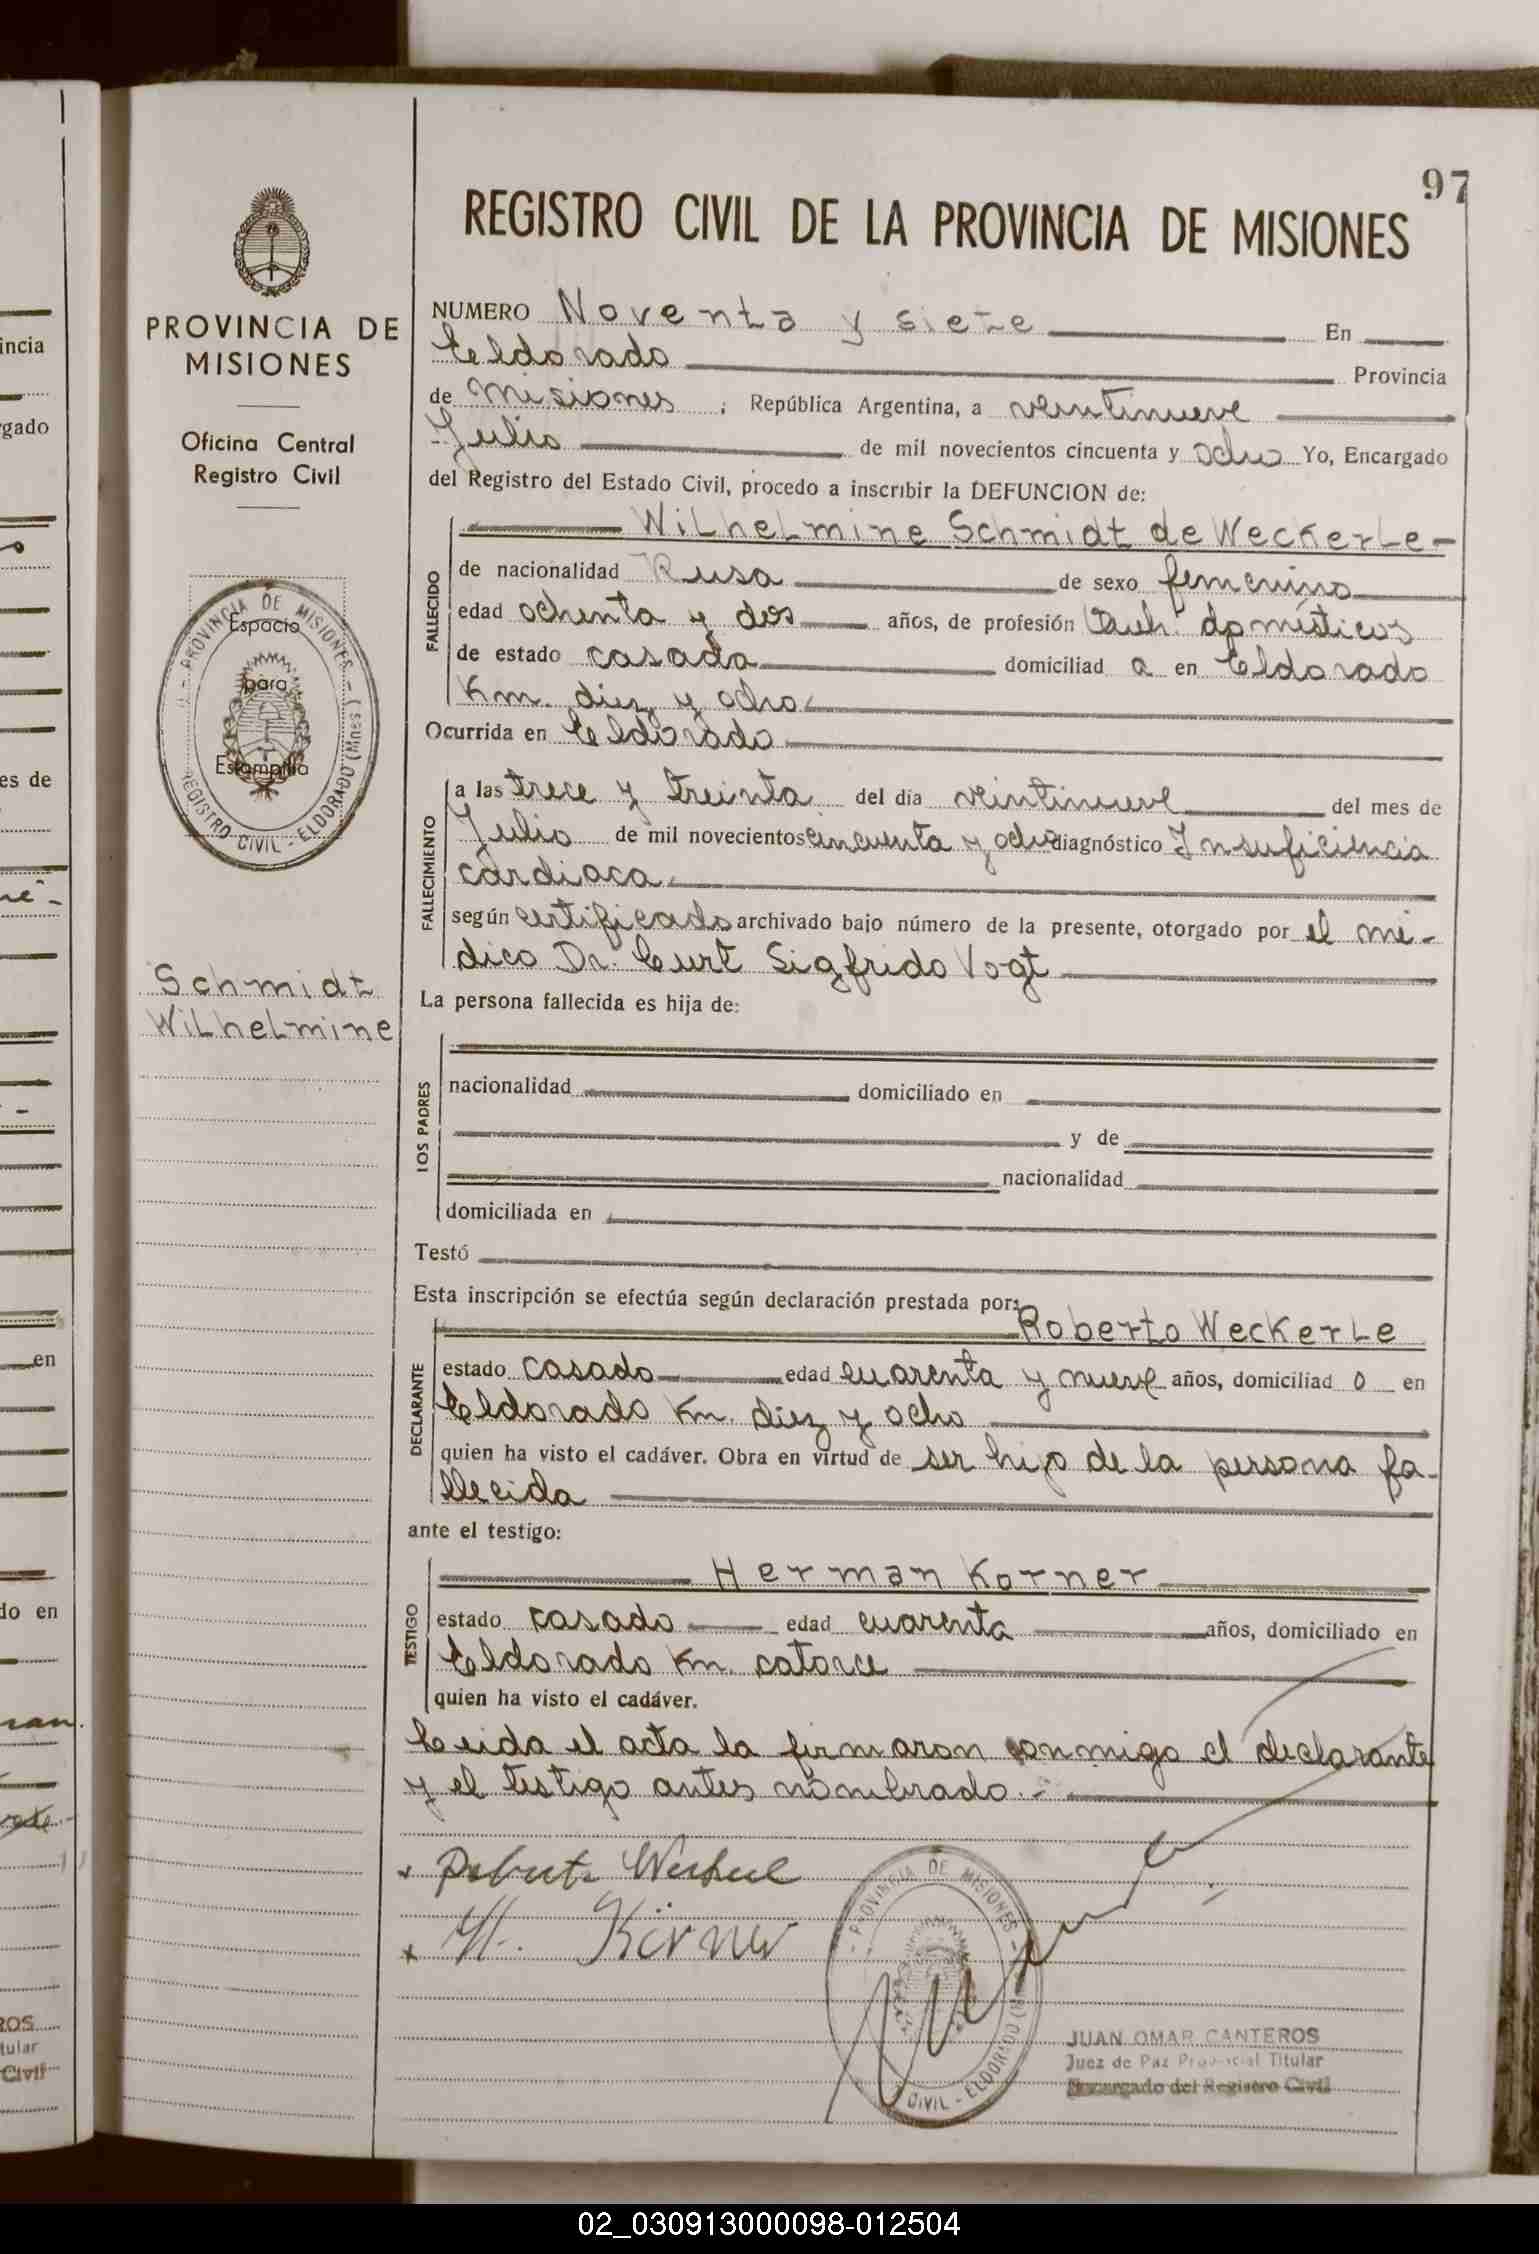 97
REGISTRO CIVIL DE LA PROVINCIA DE MISIONES
PROVINCIA DE
MISIONES
Oficina Central
Registro Civil
PROVINCIA DE MISIONES
REGISTRO CIVIL - ELDORADO (Mnes.)
Espacio
para
Estampilla
Schmidt
Wilhelmine
NUMERO Noventa y siete En
Eldorado Provincia
de Misiones ; República Argentina, a veintinueve
Julio de mil novecientos cincuenta y ocho Yo, Encargado
del Registro del Estado Civil, procedo a inscribir la DEFUNCION de:
FALLECIDO
Wilhelmine Schmidt de Weckerle
de nacionalidad Rusa de sexo femenino
edad ochenta y dos años, de profesión Queh. domésticos
de estado casada domiciliad a en Eldorado
Km. diez y ocho
Ocurrida en Eldorado
FALLECIMIENTO
a las trece y treinta del día veintinueve del mes de
Julio de mil novecientos cincuenta y ocho diagnóstico Insuficiencia
cardiaca
según certificado archivado bajo número de la presente, otorgado por el mé-
dico Dr. Curt Sigfrido Vogt
La persona fallecida es hija de:
LOS PADRES
nacionalidad domiciliado en
y de
nacionalidad
domiciliada en
Testó
Esta inscripción se efectúa según declaración prestada por:
DECLARANTE
Roberto Weckerle
estado casado edad cuarenta y nueve años, domiciliad o en
Eldorado Km. diez y ocho
quien ha visto el cadáver. Obra en virtud de ser hijo de la persona fa-
llecida
ante el testigo:
TESTIGO
Herman Korner
estado casado edad cuarenta años, domiciliado en
Eldorado Km. catorce
quien ha visto el cadáver.
Leida el acta la firmaron conmigo el declarante
y el testigo antes nombrado.-
H. Körner
PROVINCIA DE MISIONES
CIVIL - ELDORADO
JUAN OMAR CANTEROS
Juez de Paz Provincial Titular
Encargado del Registro Civil
02_030913000098-012504